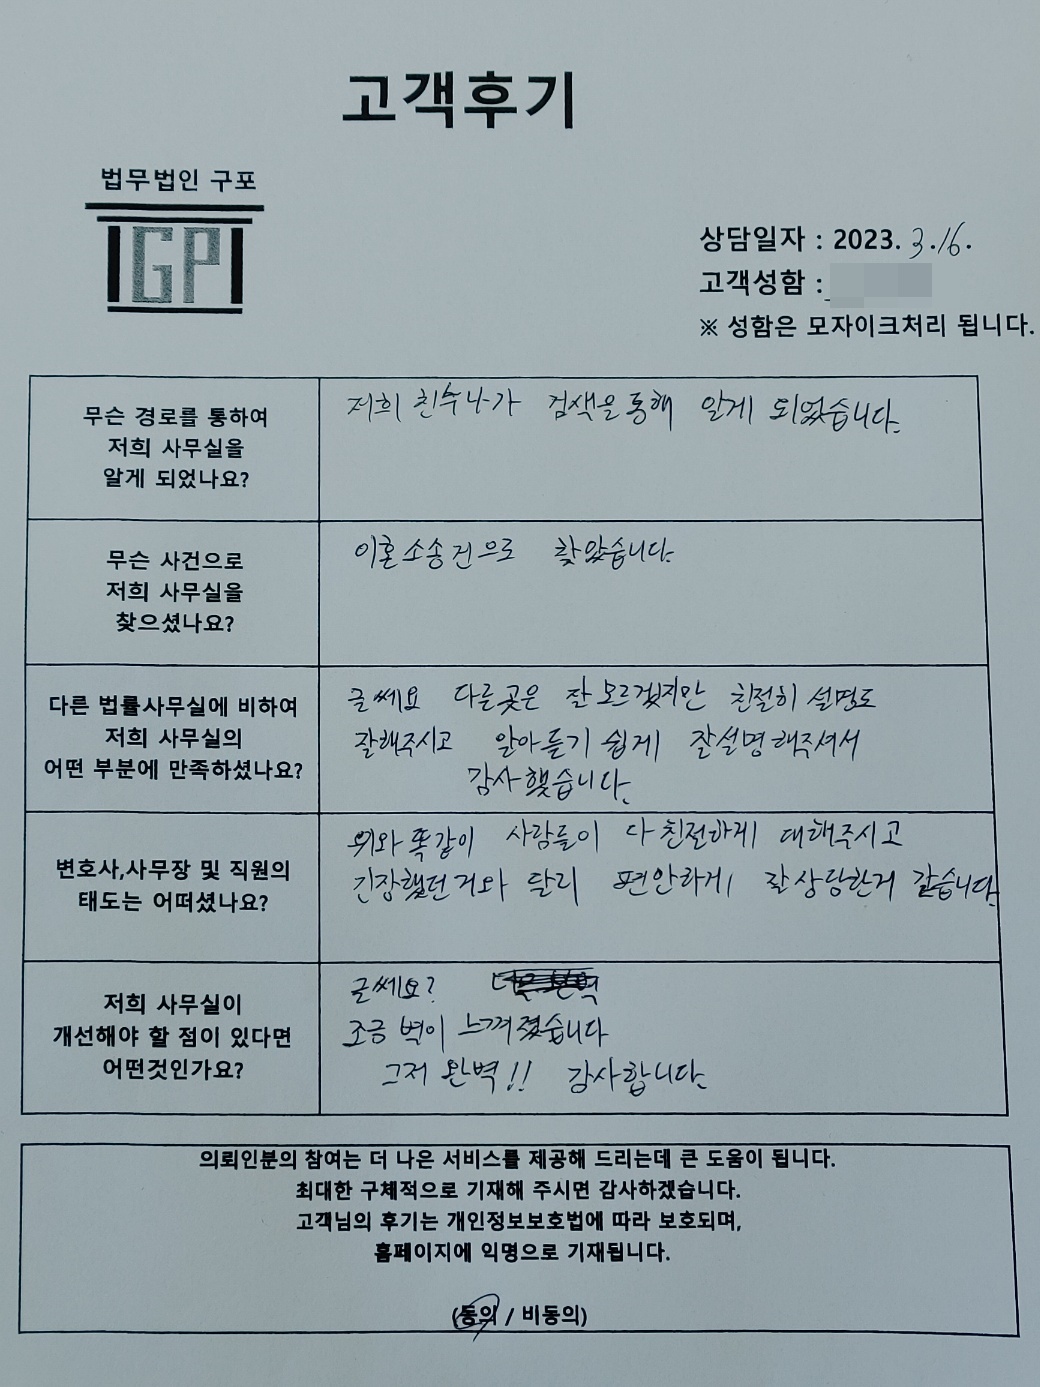 고객후기
법무법인 구포
GP
상담일자 : 2023. 3.16.
고객성함 :
※ 성함은 모자이크처리 됩니다.
무슨 경로를 통하여
저희 사무실을
알게 되었나요?
저희 친누나가 검색을 통해 알게 되었습니다.
무슨 사건으로
저희 사무실을
찾으셨나요?
이혼소송건으로 찾았습니다.
다른 법률사무실에 비하여
저희 사무실의
어떤 부분에 만족하셨나요?
글쎄요 다른곳은 잘 모르겠지만 친절히 설명도
잘해주시고 알아듣기 쉽게 잘설명해주셔서
감사했습니다.
변호사,사무장 및 직원의
태도는 어떠셨나요?
위와 똑같이 사람들이 다 친절하게 대해주시고
긴장했던거와 달리 편안하게 잘상담한거 같습니다.
저희 사무실이
개선해야 할 점이 있다면
어떤것인가요?
글쎄요?
조금 벽이 느껴졌습니다
그저 완벽!! 감사합니다.
의뢰인분의 참여는 더 나은 서비스를 제공해 드리는데 큰 도움이 됩니다.
최대한 구체적으로 기재해 주시면 감사하겠습니다.
고객님의 후기는 개인정보보호법에 따라 보호되며,
홈페이지에 익명으로 기재됩니다.
(동의 / 비동의)